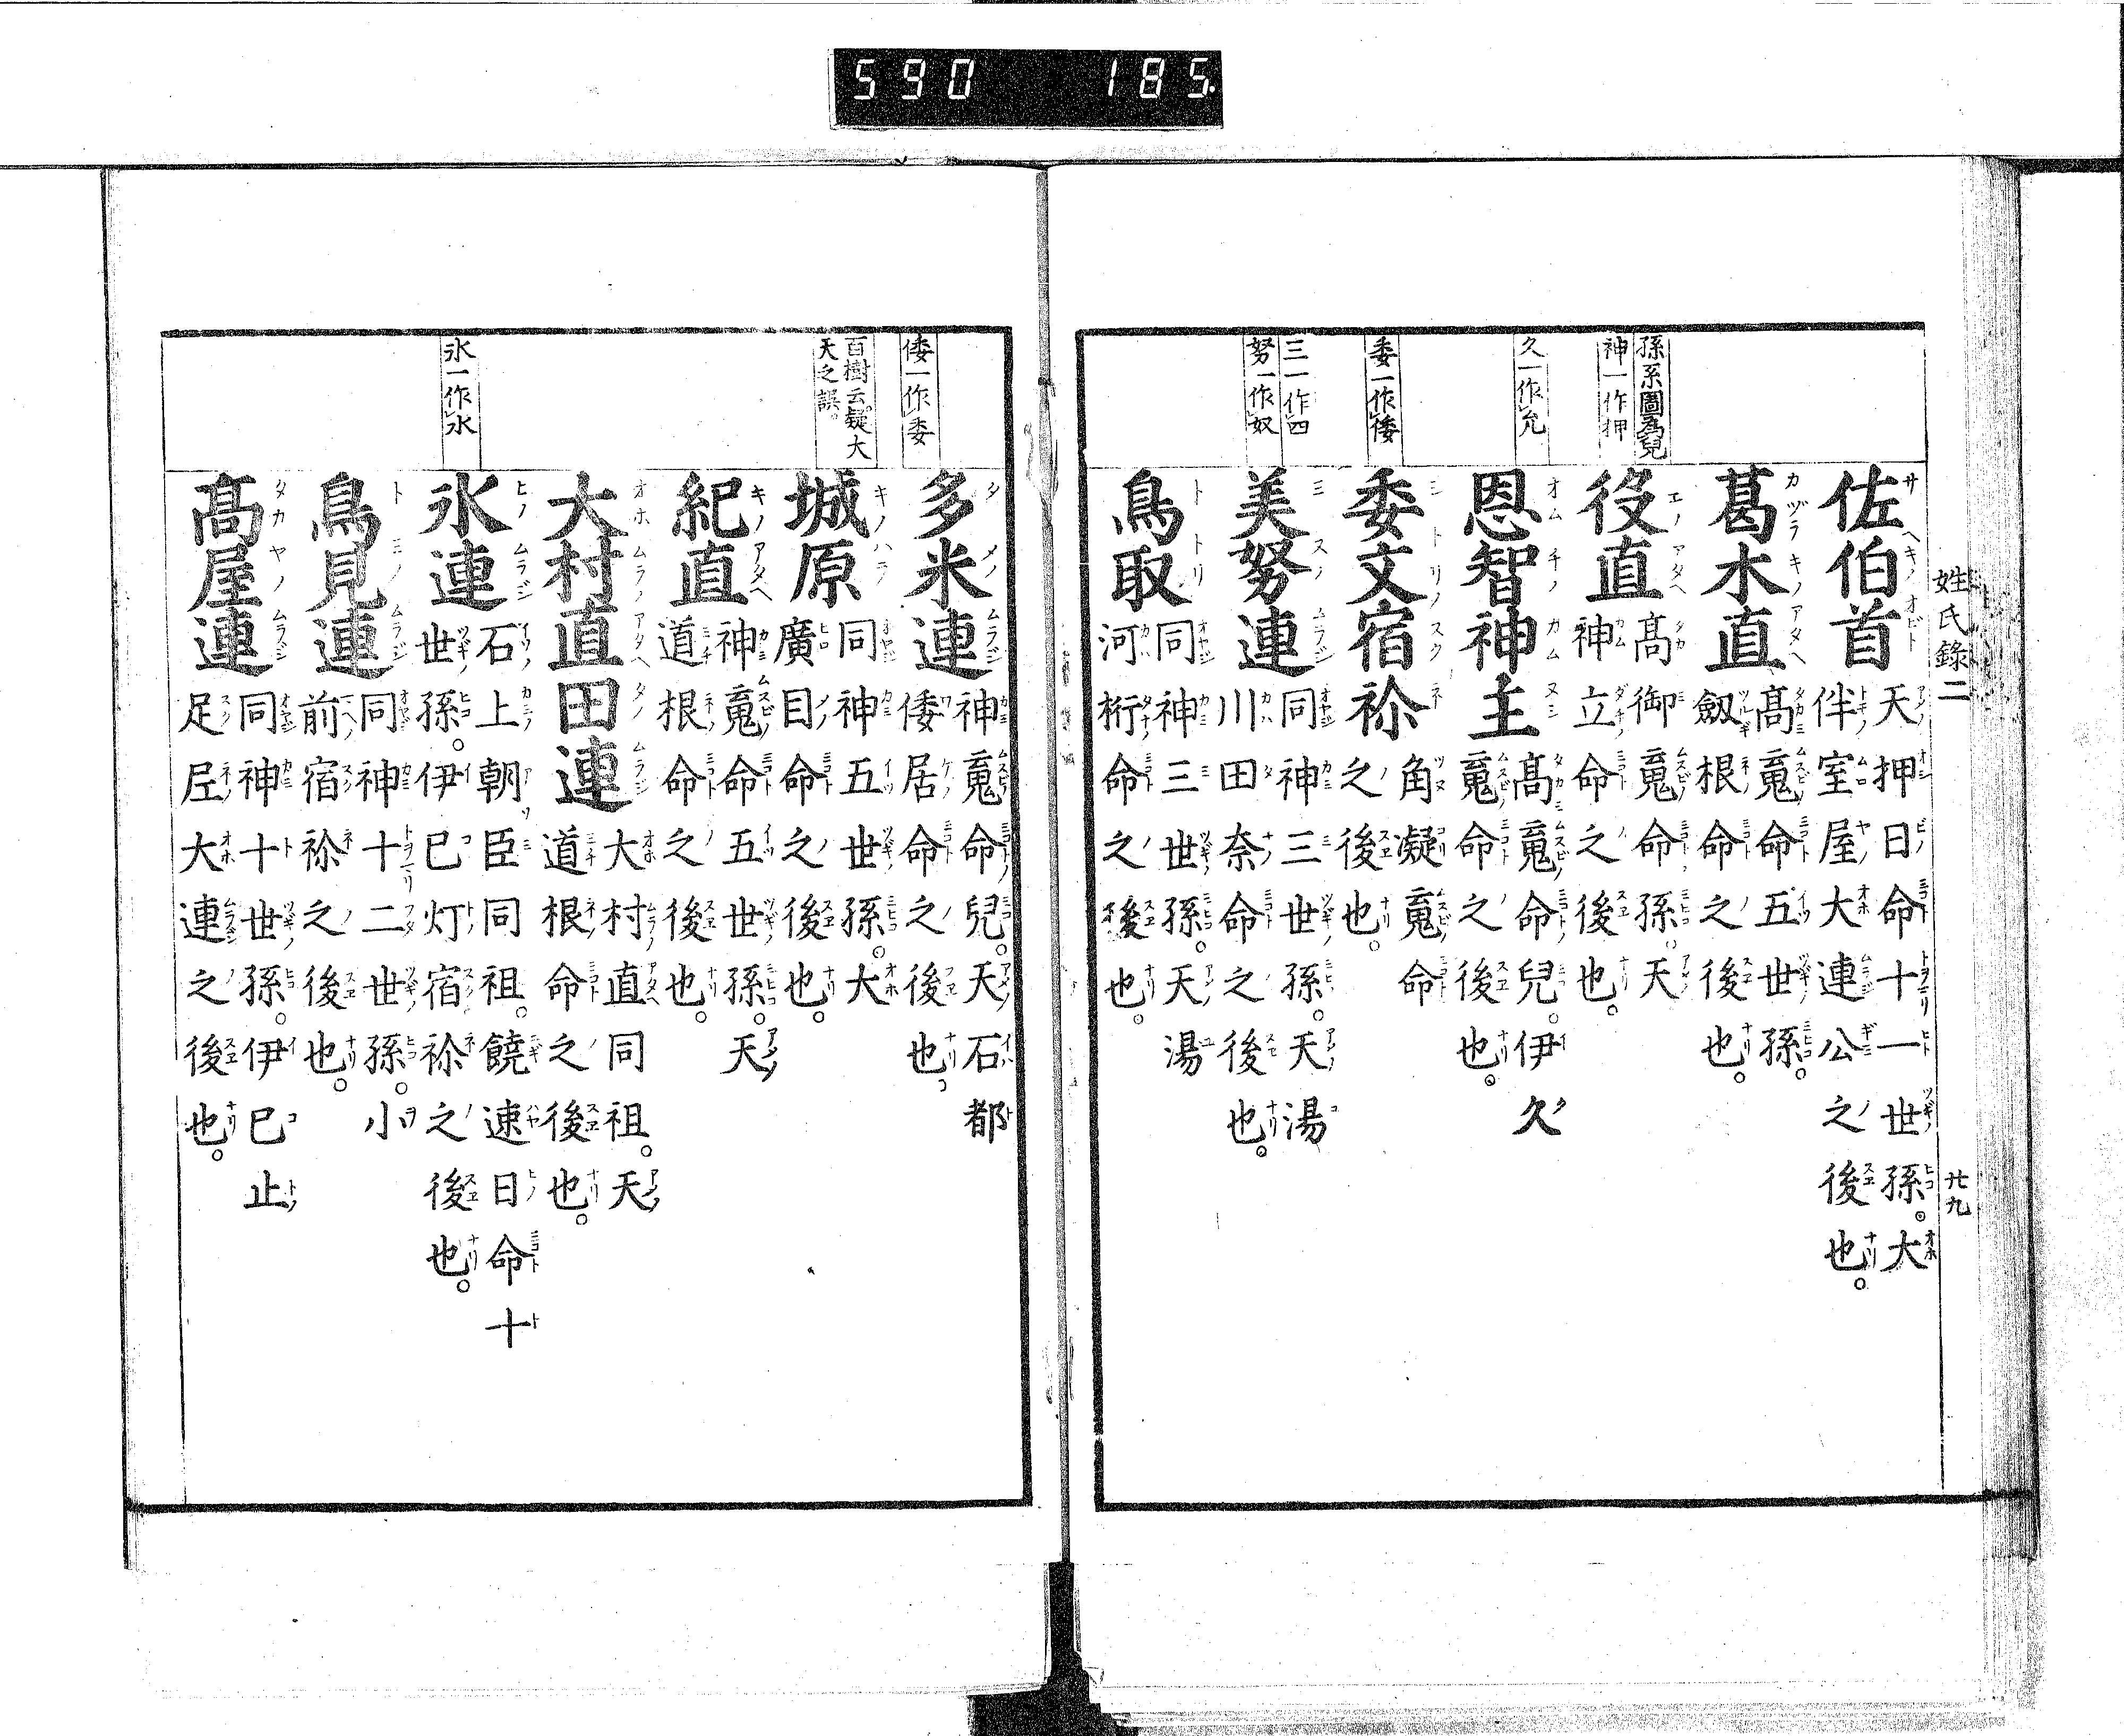 590 185.
姓氏錄二
廿九
孫系圖爲兒
神一作押
久一作允
委一作倭
三一作四
努一作奴
佐伯首
天押日命十一世孫。大
伴室屋大連公之後也。
葛木直
髙魂命五世孫。
劔根命之後也。
役直
髙御魂命孫。天
神立命之後也。
恩智神主
髙魂命兒。伊久
魂命之後也。
委文宿祢
角凝魂命
之後也。
美努連
同神三世孫。天湯
川田奈命之後也。
鳥取
同神三世孫。天湯
河桁命之後也。
倭一作委
百樹云。疑大
天之誤。
氷一作水
多米連
神魂命兒。天石都
倭居命之後也。
城原
同神五世孫。大
廣目命之後也。
紀直
神魂命五世孫。天
道根命之後也。
大村直田連
大村直同祖。天
道根命之後也。
氷連
石上朝臣同祖。饒速日命十
世孫。伊己灯宿祢之後也。
鳥見連
同神十二世孫。小
前宿祢之後也。
髙屋連
同神十世孫。伊己止
足尼大連之後也。